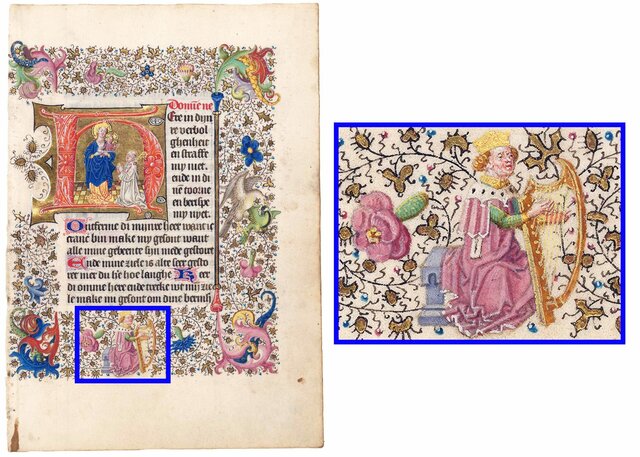 Domīe ne
HEre in dijn
re verbol
ghenheit
en straffe
my niet.
ende in di
nē toorne
en berispe
my nyet.
Ontferme di mijnre here want ic
cranc bin make my gesont want
alle mine gebeente sijn mede gestoret
Ende mine ziele is alte seer gesto
ret mer du hēe hoe langhe Keer
di omme here ende trecke wt mijn zi
ele make mi gesont om dine bermh